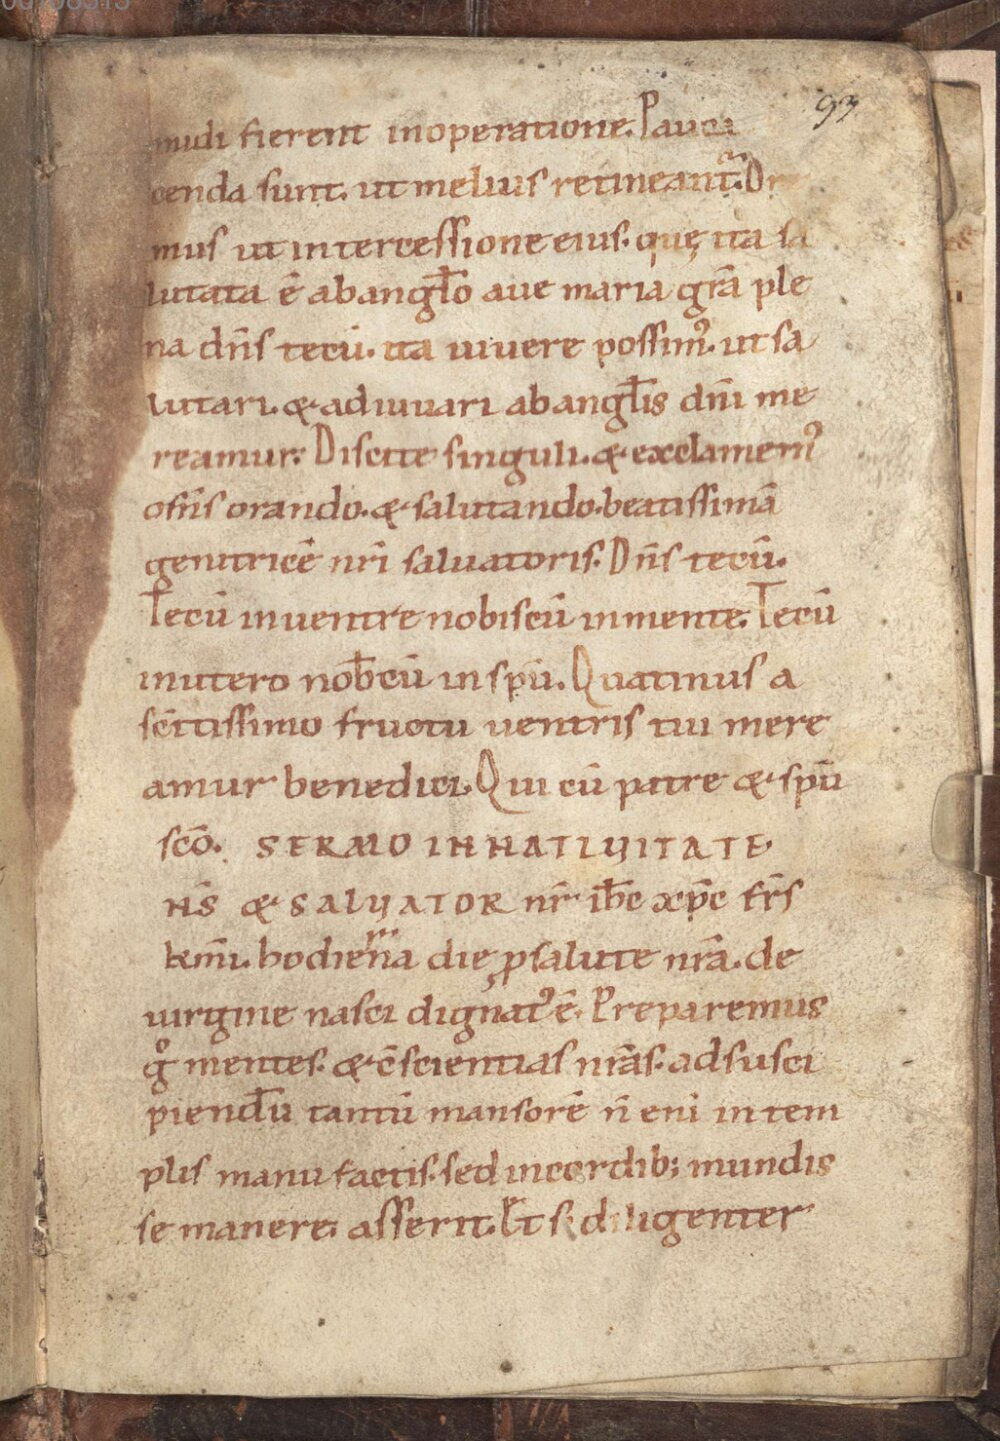 93
mudi fierent inoperatione. Pauca
cenda sunt. ut melius retineant᷑. Or
mus ut intercessione eius. quę ita sa
lutata ē abangl̄o aue maria grā ple
na dn̄s tecū. ita uiuere possimꝰ. ut sa
lutari. & adiuuari abangl̄is dn̄i me
reamur. Discite singuli. & exclamemꝰ
om̄s orando. & salutando. beatissimā
genitricē nr̄i saluatoris. Dn̄s tecū.
Tecū inuentre nobiscū inmente. Tecū
inutero nob̄cū in sp̄u. Quatinus a
sc̄ttissimo fructu uentris tui mere
amur benedici. Qui cū patre & sp̄u
sc̄o. SERMO IN NATIVITATE
NS̄ & SALVATOR nr̄ ih̄c xp̄c fr̄s
km̄i. hodierna die ꝓsalute nr̄a. de
uirgine nasci dignatꝰ ē. Preparemus
gͦ mentes. & c̄scientias nr̄as. adsusci
piend̄u tantū mansorē n̄ eni in tem
plis manu factis. sed incordib; mundis
se manere asserit. Et si diligenter